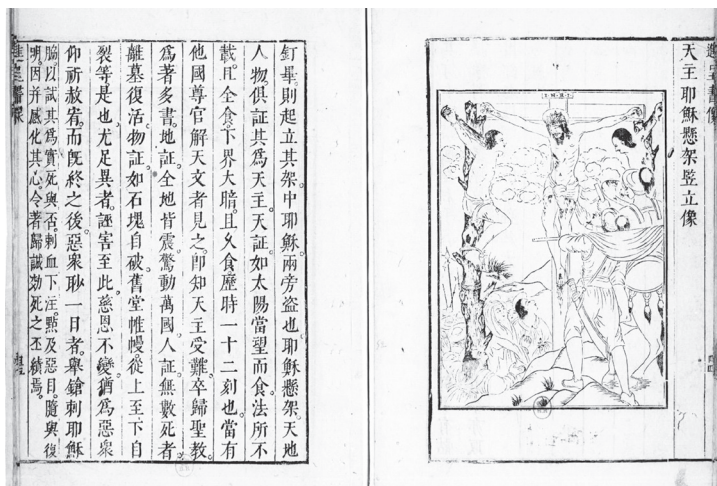 進呈書像
天主耶穌懸架竪立像
I·N·R·I
釘畢。則起立其架。中耶穌。兩旁盜也。耶穌懸架。天地
人物俱証其爲天主。天証。如太陽當望而食。法所不
載。且全食。下界大暗。且久食歷時一十二刻也。當有
他國尊官解天文者見之。卽知天主受難。卒歸聖教。
爲著多書。地証。全地皆震。驚動萬國。人証。無數死者
離墓復活。物証。如石塊自破。舊堂帷幔。從上至下自
裂等是也。尤足異者。誣害至此。慈恩不變。猶爲惡衆
仰祈赦宥。而旣終之後。惡衆眇一目者。舉鎗刺耶穌
脇以試其爲實死與否。刺血下注。點及惡目。隨與復
明。因并感化其心。令著歸誠効死之丕績焉。
進呈書像